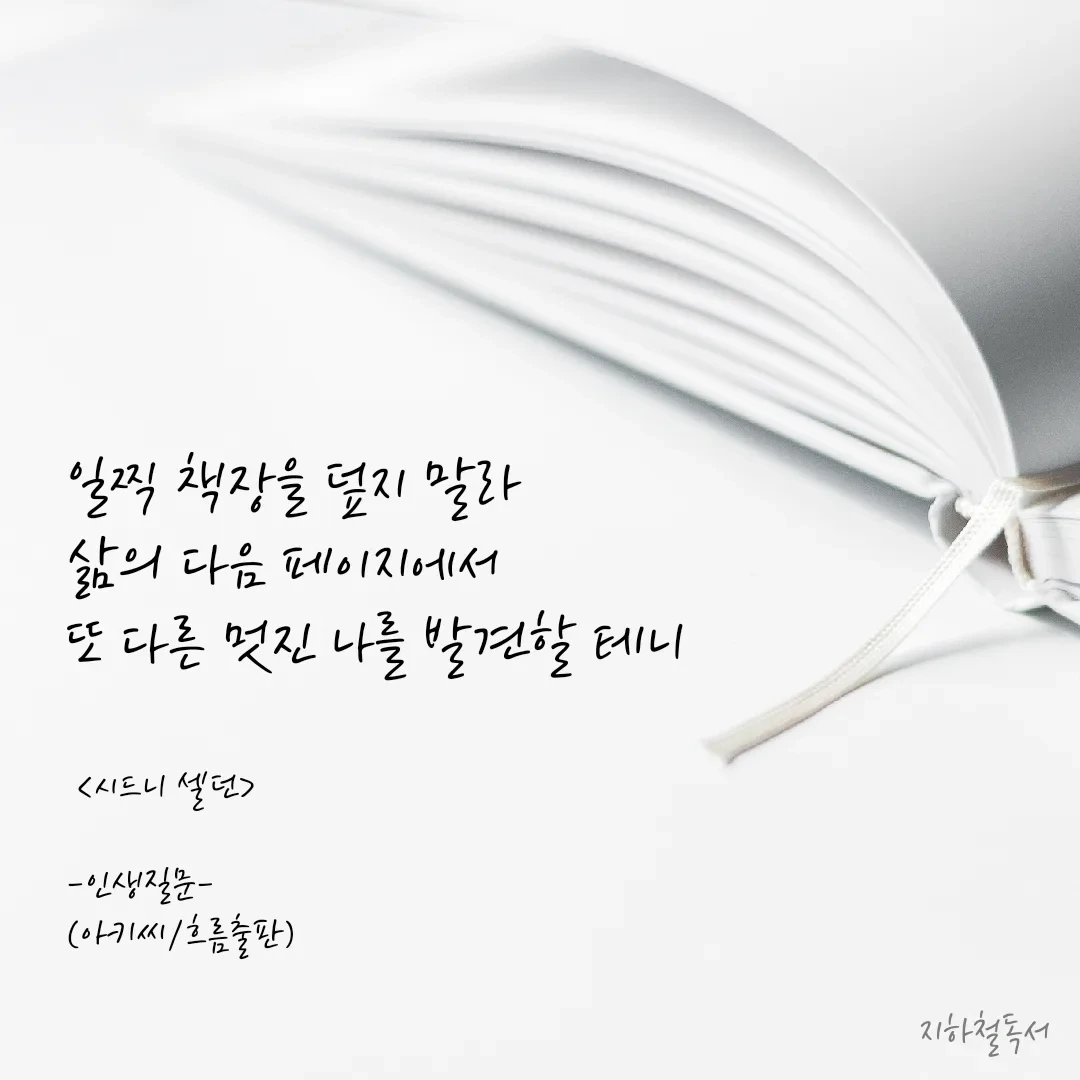 일찍 책장을 덮지 말라
삶의 다음 페이지에서
또 다른 멋진 나를 발견할 테니
<시드니 셀던>
-인생질문-
(아키씨/흐름출판)
지하철독서